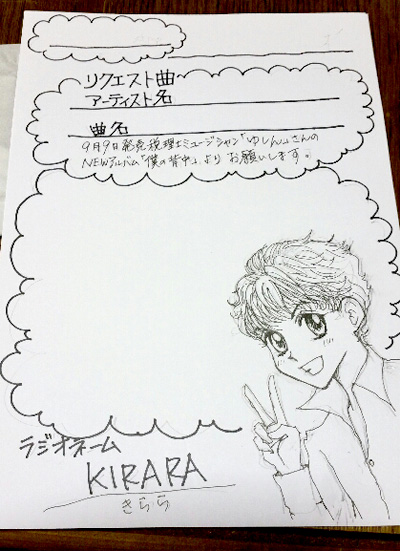 リクエスト曲
アーティスト名
曲名
9月9日発売税理士ミュージシャン「ゆしん」さんの
NEWアルバム「僕の背中」より お願いします。
ラジオネーム
KIRARA
きらら